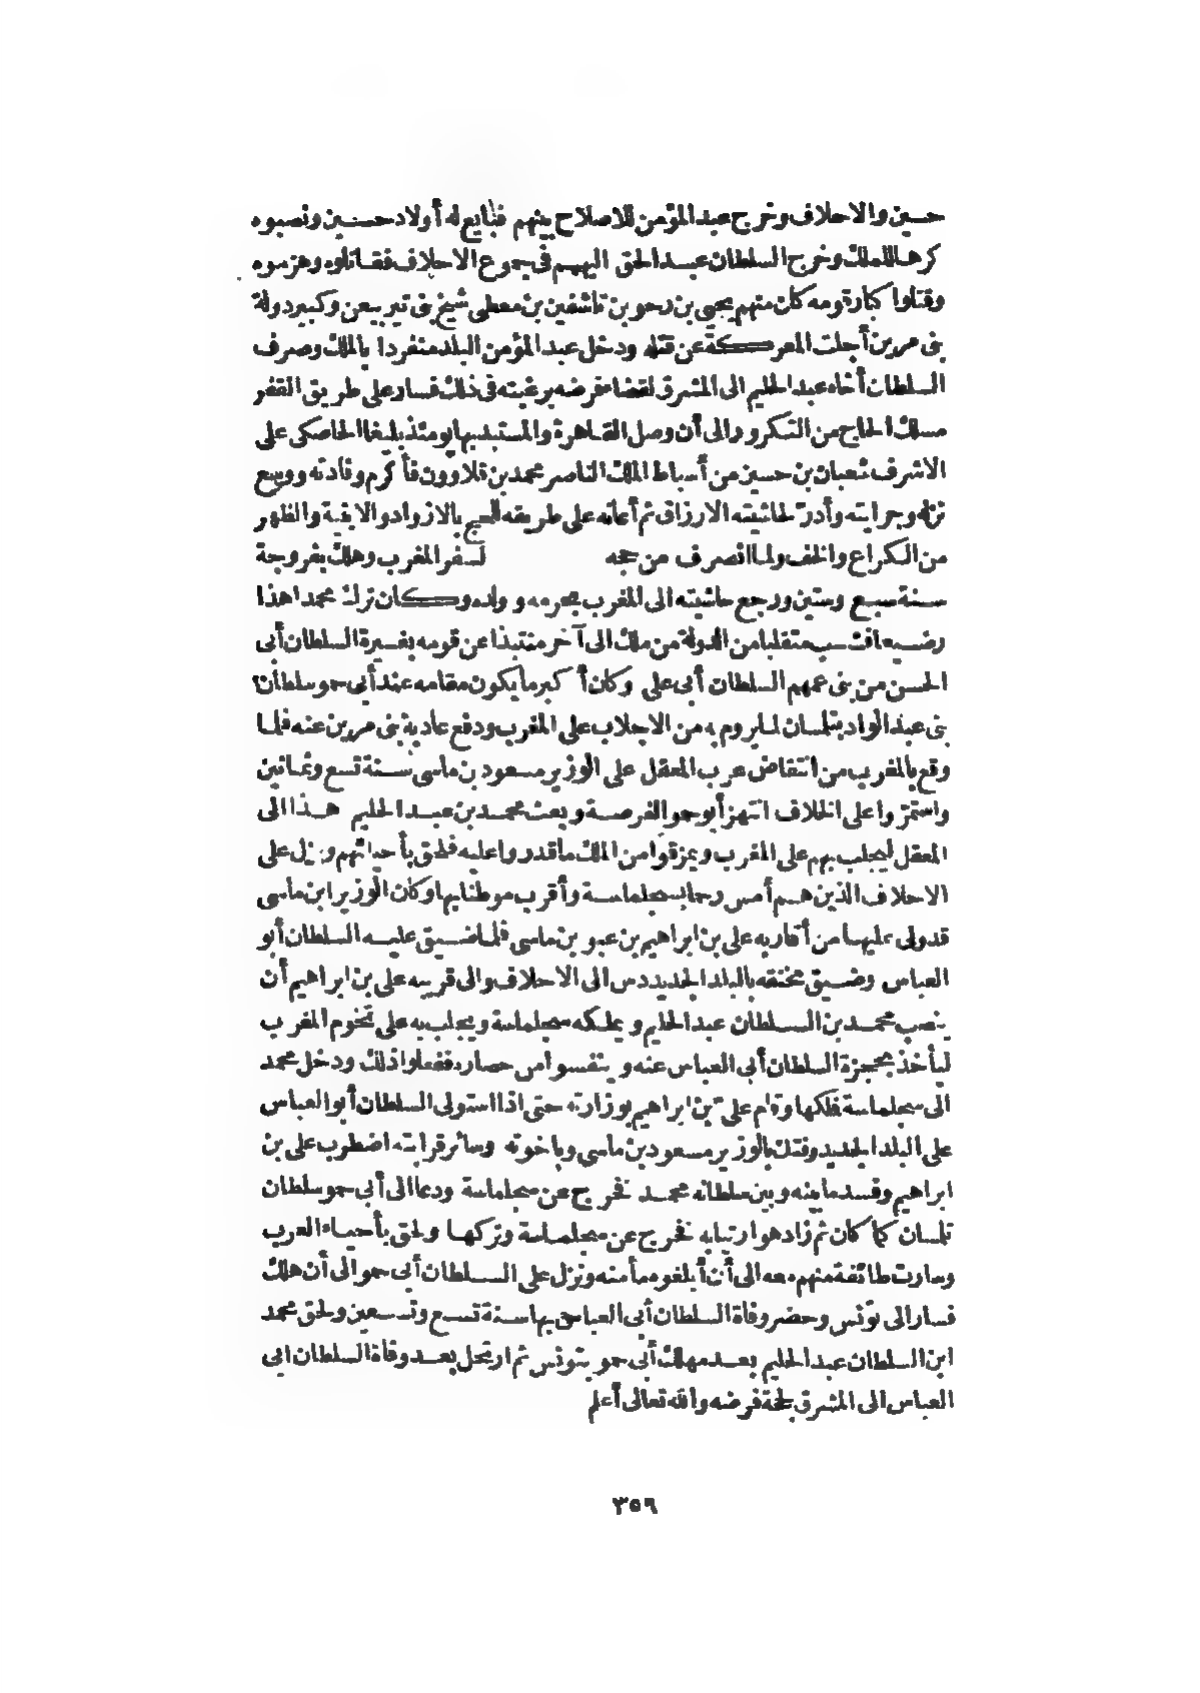 حسين والاحلاف وخرج عبد المؤمن للاصلاح بينهم فبايع له أولاد حسين ونصبوه
كرها للملك وخرج السلطان عبد الحق اليهم فى جموع الاحلاف فقاتلوه وهزموه
وقتلوا كبار قومه كان منهم يحيى بن رحو بن تاشفين بن معطى شيخ بنى تيربيعن وكبير دولة
بنى مرين أجلت المعركة عن قتله ودخل عبد المؤمن البلد منفردا بالملك وصرف
السلطان أخاه عبد الحليم الى المشرق لقضاء فرضه برغبته فى ذلك فسار على طريق القفر
مسلك الحاج من التكرور الى أن وصل القاهرة والمستبد بها يومئذ يلبغا الخاصكى على
الاشرف شعبان بن حسين من أسباط الملك الناصر محمد بن قلاوون فأكرم وفادته ووسع
نزله وجرايته وأدر لحاشيته الارزاق ثم أعانه على طريقه للحج بالازواد والابنية والظهر
من الكراع والخف ولما انصرف من حجه لسفر المغرب وهلك بفروجة
سنة سبع وستين ورجع حاشيته الى المغرب بحرمه وولده وكان ترك محمدا هذا
رضيعا فشب متقلبا من الدولة من ملك الى آخر منتبذا عن قومه بغيرة السلطان أبى
الحسن من بنى عمهم السلطان أبى على وكان أكبر ما يكون مقامه عند أبى حمو سلطان
بنى عبد الواد بتلمسان لما يروم به من الاجلاب على المغرب ودفع عادية بنى مرين عنه فلما
وقع بالمغرب من انتقاض عرب المعقل على الوزير مسعود بن ماسى سنة تسع وثمانين
واستمروا على الخلاف انتهز أبو حمو الفرصة وبعث محمد بن عبد الحليم هذا الى
المعقل ليجلب بهم على المغرب ويمزقوا من الملك ما قدروا عليه فلحق بأحيائهم ونزل على
الاحلاف الذين هم أمس رحما بسجلماسة وأقرب موطنا بها وكان الوزير ابن ماسى
قد ولى عليها من أقاربه على بن ابراهيم بن عبو بن ماسى فلما ضيق عليه السلطان أبو
العباس وضيق مخنقه بالبلد الجديد دس الى الاحلاف والى قريبه على بن ابراهيم أن
ينصب محمد بن السلطان عبد الحليم ويملكه سجلماسة ويجلب به على تخوم المغرب
ليأخذ بحجزة السلطان أبى العباس عنه ويتنفسوا من حصاره ففعلوا ذلك ودخل محمد
الى سجلماسة فملكها وقام على بن ابراهيم بوزارته حتى اذا استولى السلطان أبو العباس
على البلد الجديد وفتك بالوزير مسعود بن ماسى وباخوته وسائر قرابته اضطرب على بن
ابراهيم وفسد ما بينه وبين سلطانه محمد فخرج عن سجلماسة ودعا الى أبى حمو سلطان
تلمسان كما كان ثم زاد هو ارتيابه فخرج عن سجلماسة وتركها ولحق بأحياء العرب
وسارت طائفة منهم معه الى أن أبلغوه مأمنه ونزل على السلطان أبى حمو الى أن هلك
فسار الى تونس وحضر وفاة السلطان أبى العباس بها سنة تسع وتسعين ولحق محمد
ابن السلطان عبد الحليم بعد مهلك أبى حمو بتونس ثم ارتحل بعد وفاة السلطان ابى
العباس الى المشرق لحجة فرضه والله تعالى أعلم
٣٥٦